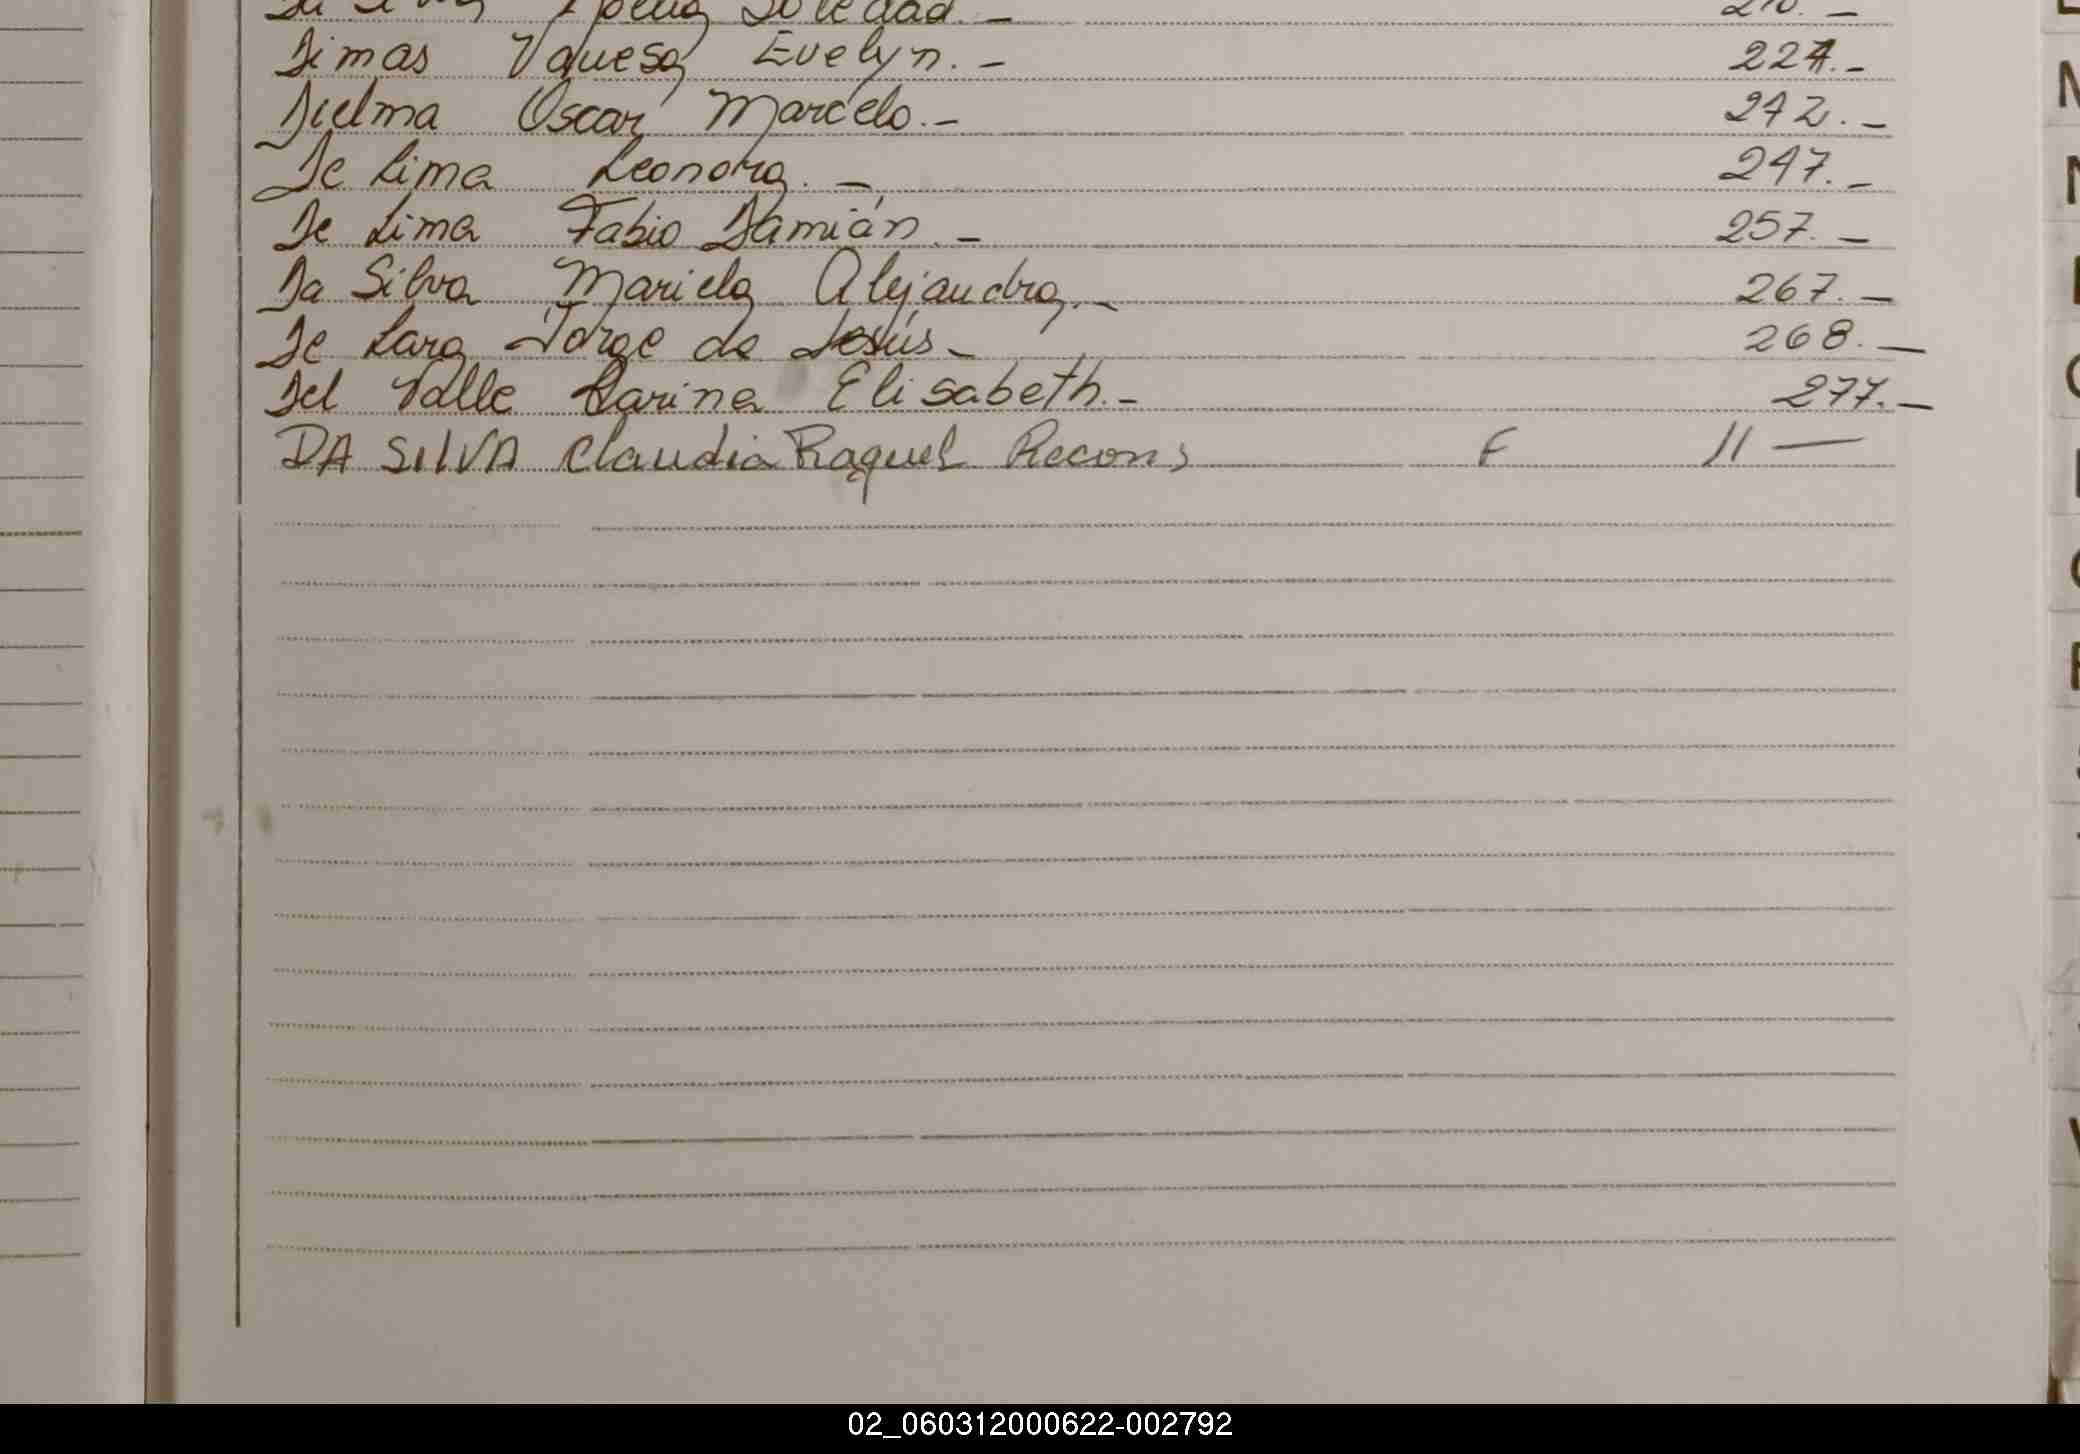 Da Silva Noelia Soledad.- 210.-
Dimas Vanesa Evelyn.- 227.-
Dielma Oscar Marcelo.- 242.-
De Lima Leonora.- 247.-
De Lima Fabio Damián.- 257.-
Da Silva Mariela Alejandra.- 267.-
De Lara Jorge de Jesús- 268.-
Del Valle Karina Elisabeth.- 277.-
DA SILVA Claudia Raquel Recons F 11 —
02_060312000622-002792